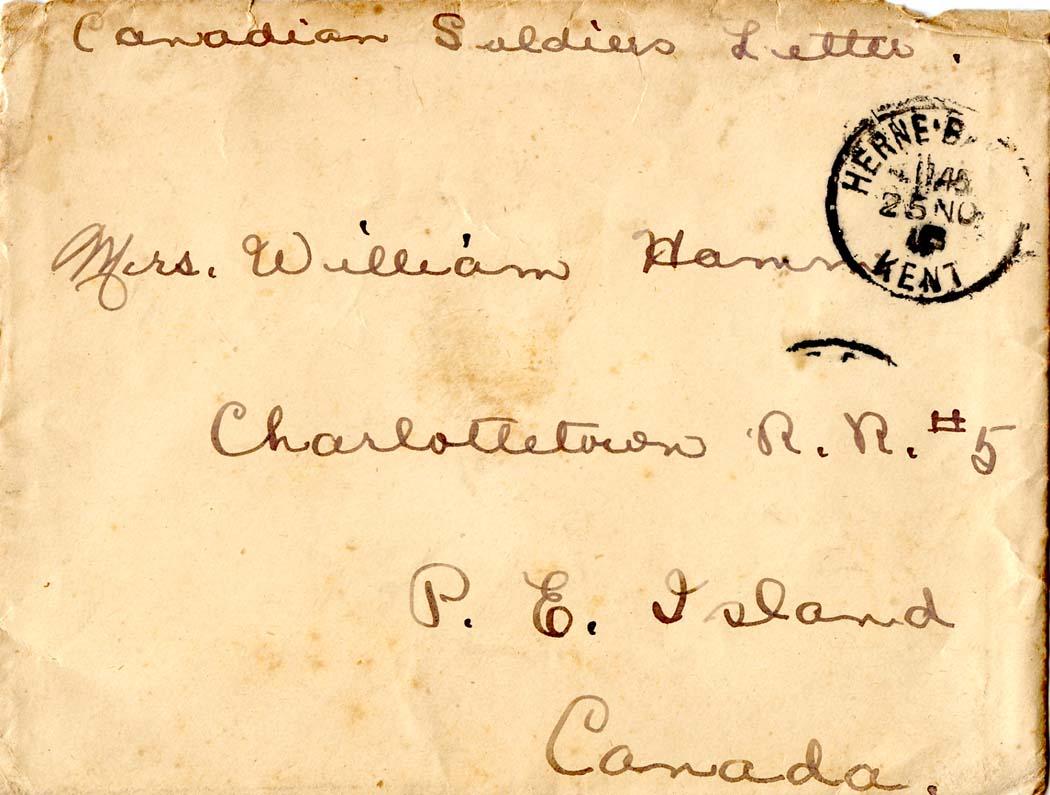 Canadian Soldiers Letter.
HERNE·B
11 45
25 NO
KENT
Mrs. William Hamm
Charlottetown R. R. #5
P. E. Island
Canada.